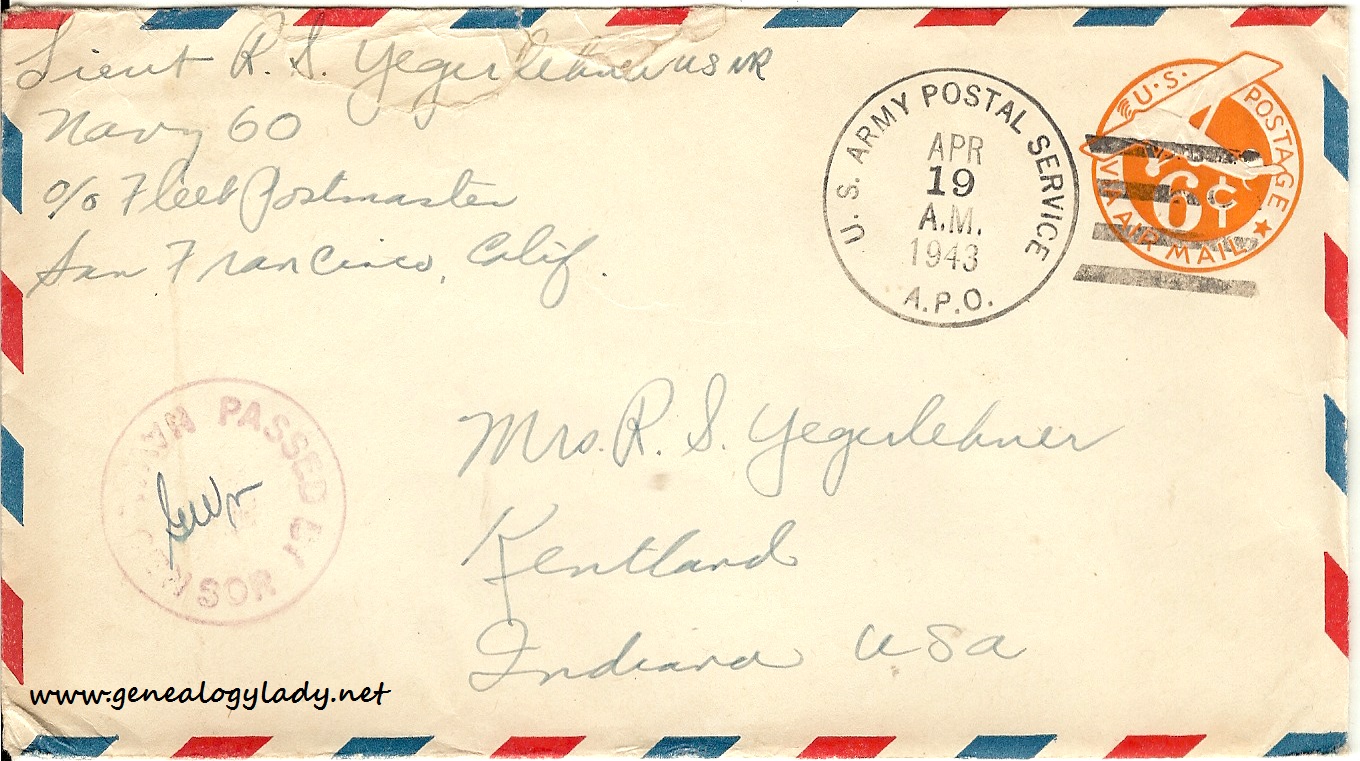 Lieut R. S. Yegerlehner USNR
Navy 60
c/o Fleet Postmaster
San Francisco, Calif.
U.S. ARMY POSTAL SERVICE
APR
19
A.M.
1943
A.P.O.
U.S. POSTAGE
6¢
VIA AIR MAIL
PASSED BY
NAVAL CENSOR
Mrs. R. S. Yegerlehner
Kentland
Indiana USA
www.genealogylady.net